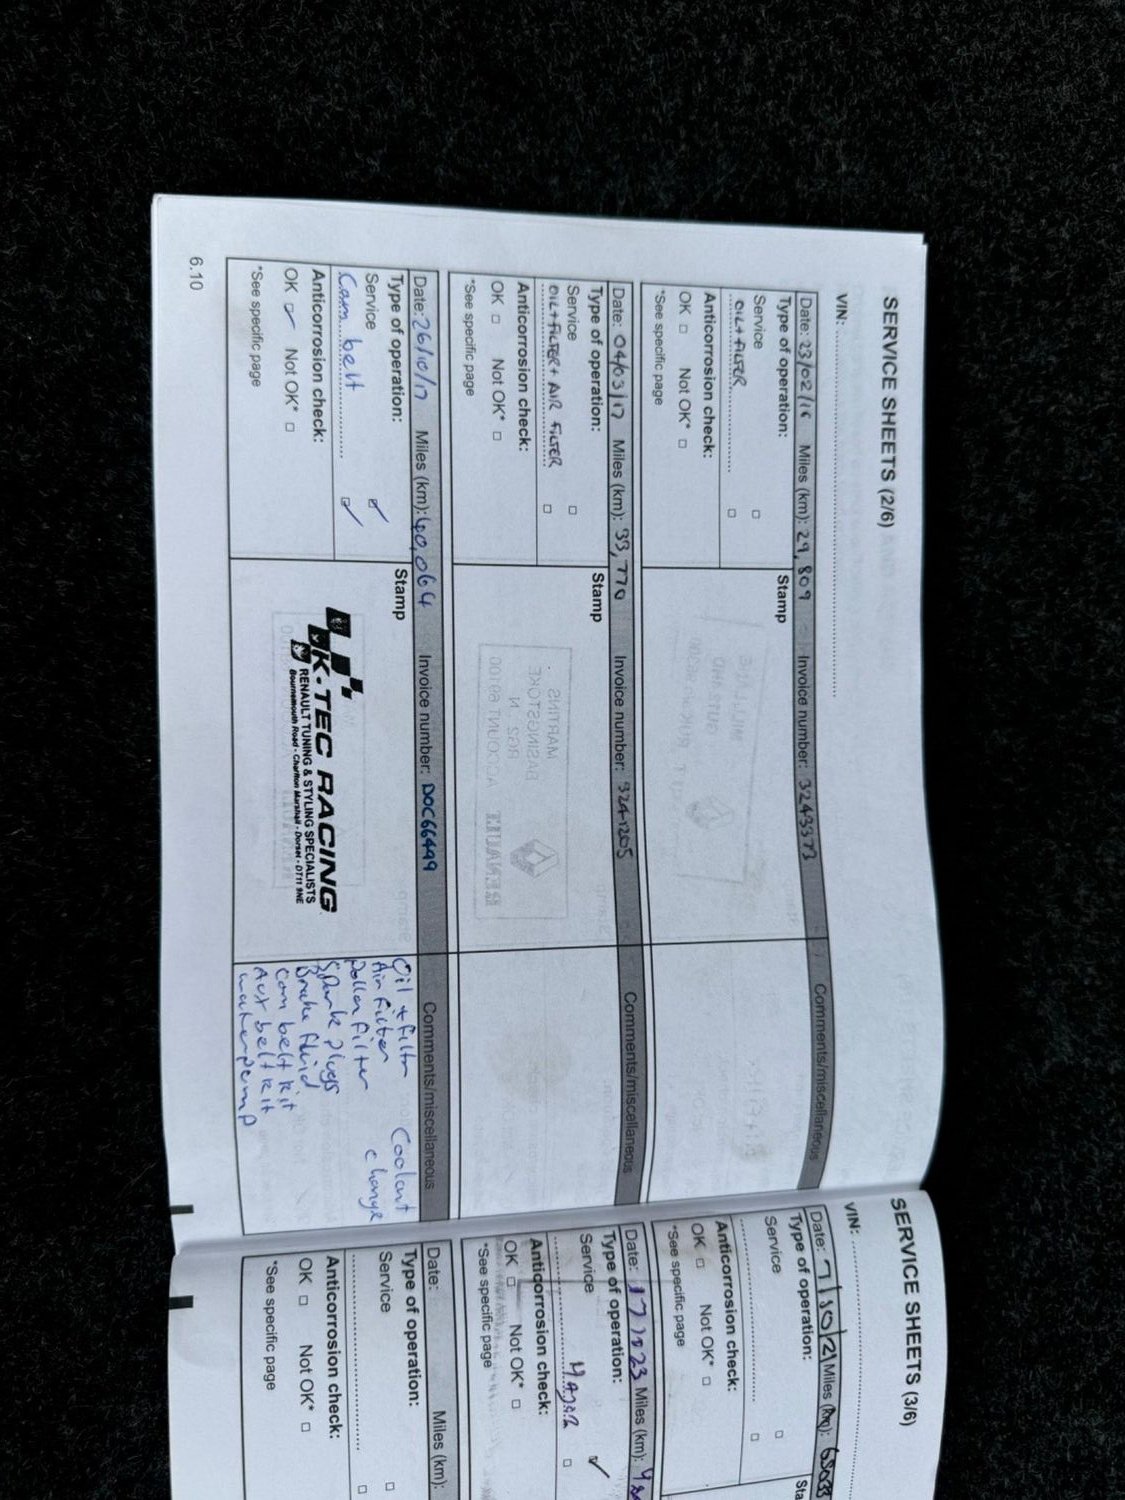 SERVICE SHEETS (2/6)
VIN:
Date: 23/02/16 Miles (km): 29,809 Invoice number: 3243373 Comments/miscellaneous
Type of operation: Stamp
Service
OIL+FILTER
Anticorrosion check:
OK Not OK*
*See specific page
Date: 04/03/17 Miles (km): 33,770 Invoice number: 3241205 Comments/miscellaneous
Type of operation: Stamp
Service
OIL+FILTER+AIR FILTER
Anticorrosion check:
OK Not OK*
*See specific page
MARTINS
BASINGSTOKE
RG2
ACCOUNT 69100
RENAULT
Date: 26/10/17 Miles (km): 40,064 Invoice number: DOC66449 Comments/miscellaneous
Type of operation: Stamp
Service
Cam belt
Anticorrosion check:
OK Not OK*
*See specific page
K-TEC RACING
RENAULT TUNING & STYLING SPECIALISTS
Bournemouth Road - Charlton Marshall - Dorset - DT11 9NE
Oil + filter Coolant
Air Filter change
Pollen filter
Spark plugs
Brake fluid
Cam belt kit
Aux belt kit
waterpump
6.10
SERVICE SHEETS (3/6)
VIN:
Date: 7/10/21 Miles (km):
Type of operation: Sta
Service
Anticorrosion check:
OK Not OK*
*See specific page
Date: Miles (km):
Type of operation:
Service
Anticorrosion check:
OK Not OK*
*See specific page
Date: Miles (km):
Type of operation:
Service
Anticorrosion check:
OK Not OK*
*See specific page